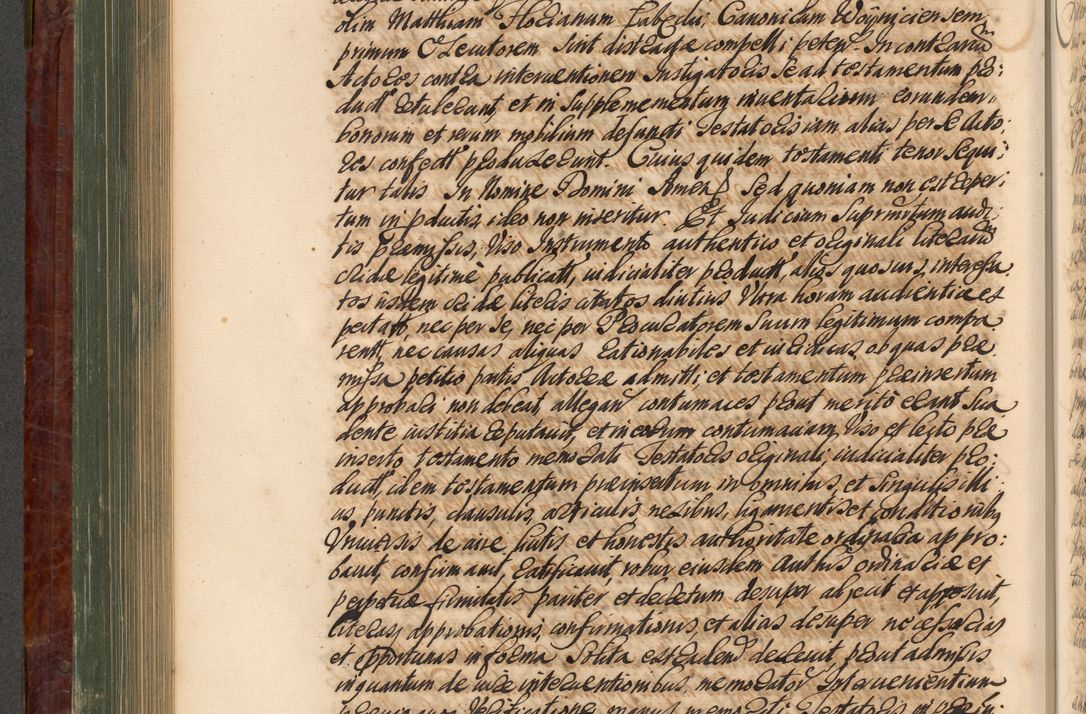 olim Matthiam Hocianum Labędź Canonicum Woyniciensem
primum Exequutorem sint distcarje compelli petent. In contrariũ
Actores contra interventionem Instigatoris se ad testamentum pro:
duct. retulerunt, et in supplementum inventarium eorundem
bonorum et rerum mobilium defuncti Testatoris iam alias per se Acto:
res confect. produxerunt. Cuius quidem testamenti tenor sequi:
tur talis In Nomine Domini Amen. Sed quoniam non est reper:
tum in productis ideo non inseritur. Et Iudicium suprascriptum audi:
tis præmissis, viso Instrumento authentico et originali literarũ
cridæ legitime publicatt. iudicialiter product. alios quosvis interessa:
tos iisdem cridæ literis citatos diutius ultra horam audientiæ ex
pectatt. nec per se, nec per Procuratorem suum legitimum compa
rentt. nec causas aliquas rationabiles et iuridicas, ob quas præ
missa petitio partis Actoreæ admitti et testamentum præinsertum
approbari non debeat, allegan. contumaces prout merito erant sua
dente iustitia reputavit, et in eorum contumaciam, viso et lecto præ
inserto testamento memorati Testatoris originali iudicialiter pro:
duct. idem testamentum præinsertum in omnibus, et singulis illi
us punctis, clausulis, articulis nexibus, ligamentis et conditionibus
Universis de iure iustis et honestis authoritate ordinaria appro:
bavit, confirmavit, ratificavit, robur eiusdem Authtis ordinariæ et
perpetuæ firmitatis pariter et decretum desuper adjecit et apposuit,
literas approbationis, confirmationis, et alias desuper necessarias
et opportunas in forma solita extradend. decrevit, prout admissis
inquantum de iure interventionibus, memorator. Intervenientium
Testatoris